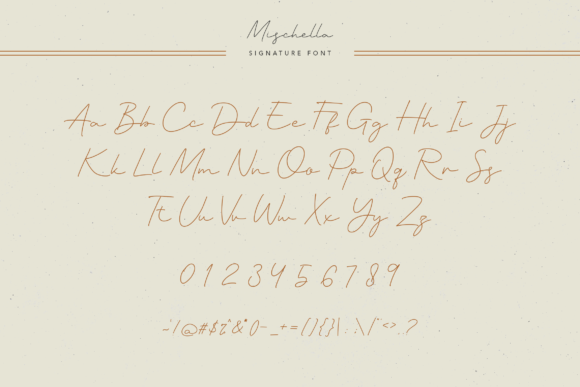 Mischella
SIGNATURE FONT
Aa Bb Cc Dd Ee Ff Gg Hh Ii Jj
Kk Ll Mm Nn Oo Pp Qq Rr Ss
Tt Uu Vv Ww Xx Yy Zz
0 1 2 3 4 5 6 7 8 9